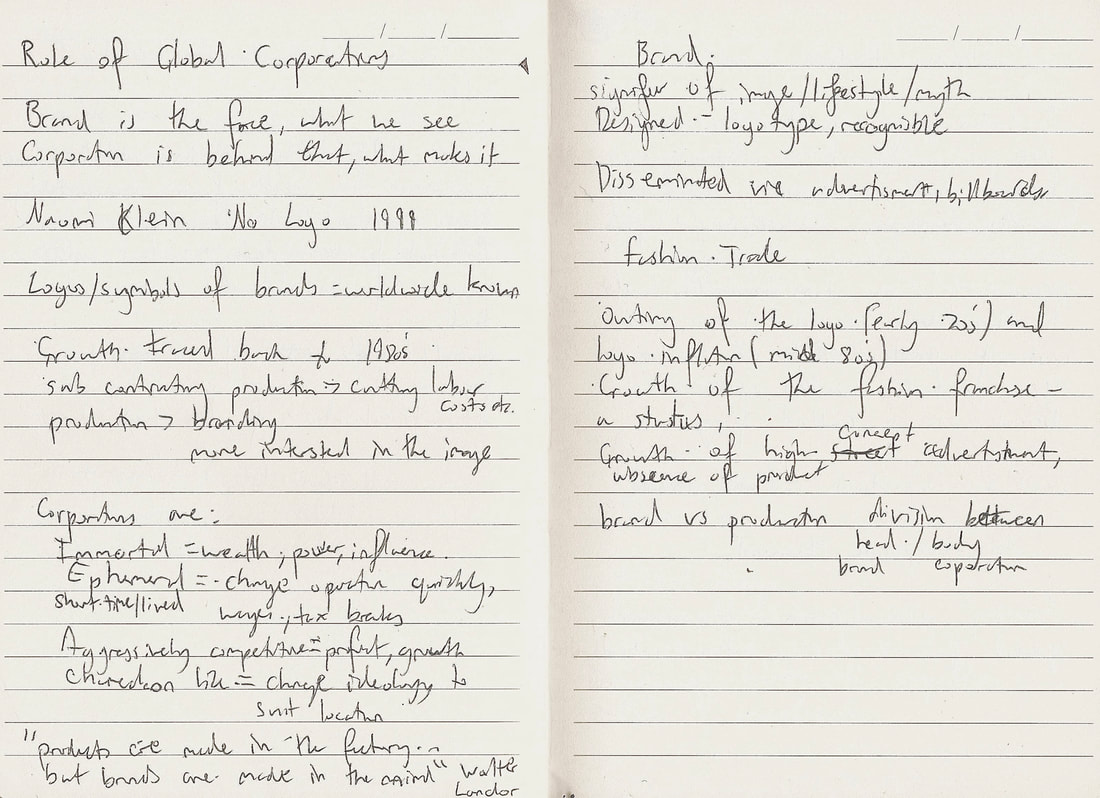 Role of Global Corporations
Brand is the face, what we see
Corporation is behind that, what makes it
Naomi Klein 'No Logo 1999
Logos/symbols of brands = worldwide known
Growth traced back to 1980s'
sub contracting production => cutting labour
costs etc.
production > branding
more intersted in the image
Corporations are:
Immortal = wealth, power, influence.
Ephemeral = change operation quickly,
short-time/lived wages, tax breaks
Aggressively competitive = profit, growth
like = change ideology to
suit location
"products are made in the factory...
but brands are made in the mind" Walter
Landor
Brand:
signifier of image/lifestyle/myth
Designed - logotype, recognisible
Disseminated via advertisment, billboards
Fashion Trade
Outing of the logo (early 70s') and
logo inflation (mid 80s)
Growth of the fashion franchise -
a status,
concept
Growth of high street advertistment,
absence of product
brand vs production division between
head / body
brand coporation